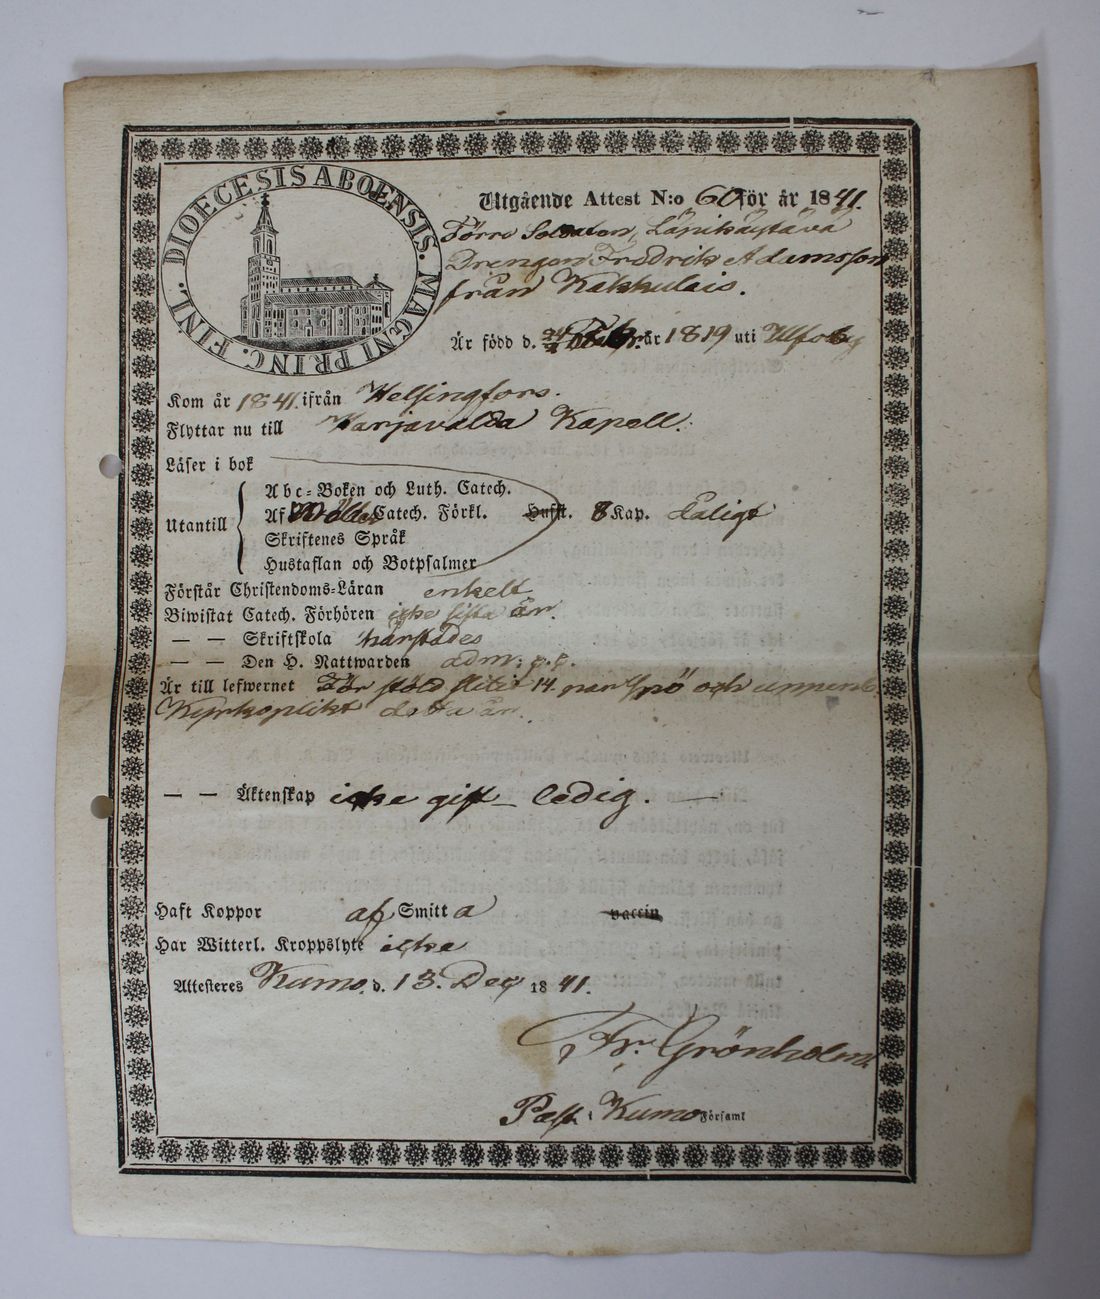 FINL. DIOECESIS ABOENSIS. MAGNI PRINC.
Utgående Attest N:o 60 för år 1841.
Förre Soldaten,
Drengen Fredrik Adamsson
från Kakkulais.
Är född d. 24 Febr. år 1819 uti Ulfsby
Kom år 1841 ifrån Helsingfors.
Flyttar nu till Harjavalda Kapell.
Läser i bok
Utantill
Abc-Boken och Luth. Catech.
Af Catech. Förkl. Hufst. 8 Kap. dåligt
Skriftenes Språk
Hustaflan och Botpsalmer
Förstår Christendoms-Läran enkelt
Biwistat Catech. Förhören icke sista år.
— — Skriftskola härstädes
— — Den H. Nattwarden adm: p. p.
Är till lefwernet För stöld slitit 14 par Spö och
Kyrkoplikt detta år.
— — Äktenskap icke gift – ledig. —
Haft Koppor af Smitta vaccin
Har Witterl. Kroppslyte icke
Attesteres Kumo d. 13. Dec. 1841.
Fr. Grönholm
Past. i Kumo Församl